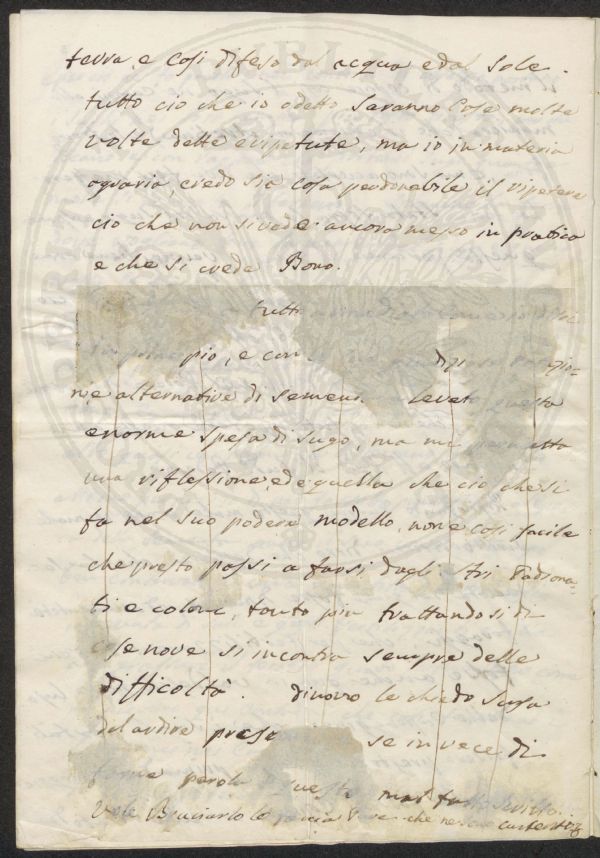 terra, e cosi difeso dal acqua e dal sole.
tutto cio che io o detto saranno cose molte
volte dette e ripetute, ma io in materia
agraria, credo sia cosa perdonabile il ripetere
cio che non si vede ancora messo in pratica
e che si crede Bono.
tutto
pio, e con
ni e alternative di semen leveto questa
enorme spesa di sugo, ma mi permetta
una riflessione, ed e quella che cio che si
fa nel suo podere modello, non e cosi facile
che presto possi a farsi dagli Tri Padrona=
ti e coloni, tanto piu trattandosi di
cose nove si incontra sempre delle
difficoltà. di novo le chiedo scusa
del ardire preso se in vece di
farne parola questo
vole Bruciarlo lo che